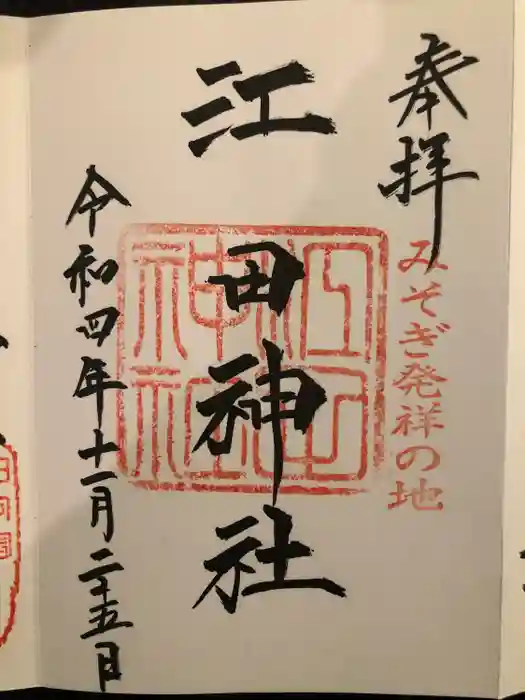 奉拝
みそぎ発祥の地
江田神社
江田
神社
令和四年十一月二十五日